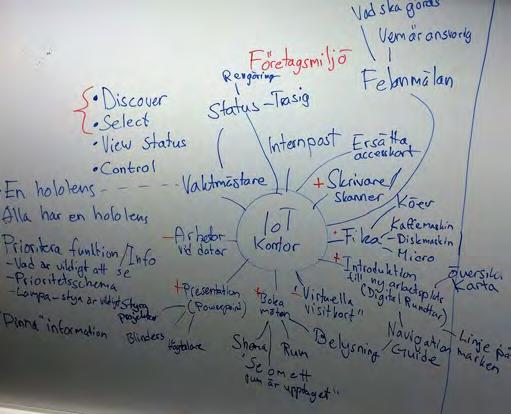 Vad ska göras
Vem är ansvarig
Företagsmiljö
Felanmälan
Rengöring
Status - Trasig
• Discover
• Select
• View Status
• Control
Internpost
Ersätta
accesskort
En hololens
Alla har en hololens
Vaktmästare
+ Skrivare/
Skanner
Köer
IoT
Kontor
- Arbetar
vid dator
+ Fika
Kaffemaskin
- Diskmaskin
Micro
Prioritera funktion/Info
- Vad är viktigt att se
- Prioritetsschema
- Lampa - styra är viktigt
+ Introduktion
till ny arbetsplats
(Digital Rundtur)
Översikt
Karta
+ Presentation
(Powerpoint)
Styra
projektor
Blinders
Högtalare
+ Boka
möten
- "Virtuella
visitkort"
"Pinna" information
Skema
Rum
"Se om ett
rum är upptaget"
Belysning
Navigation
Guide
Linje på
marken